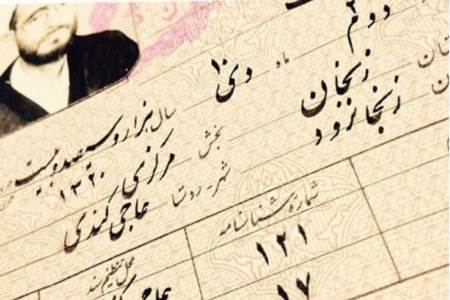 دوم ماه دی
سال هزار و سیصد و بیست ۱۳۲۰
زنجان
بخش مرکزی زنجانرود
شهر - روستا حاجی کندی
شماره شناسنامه
۱۲۱
محل تنظیم سند
۱۷